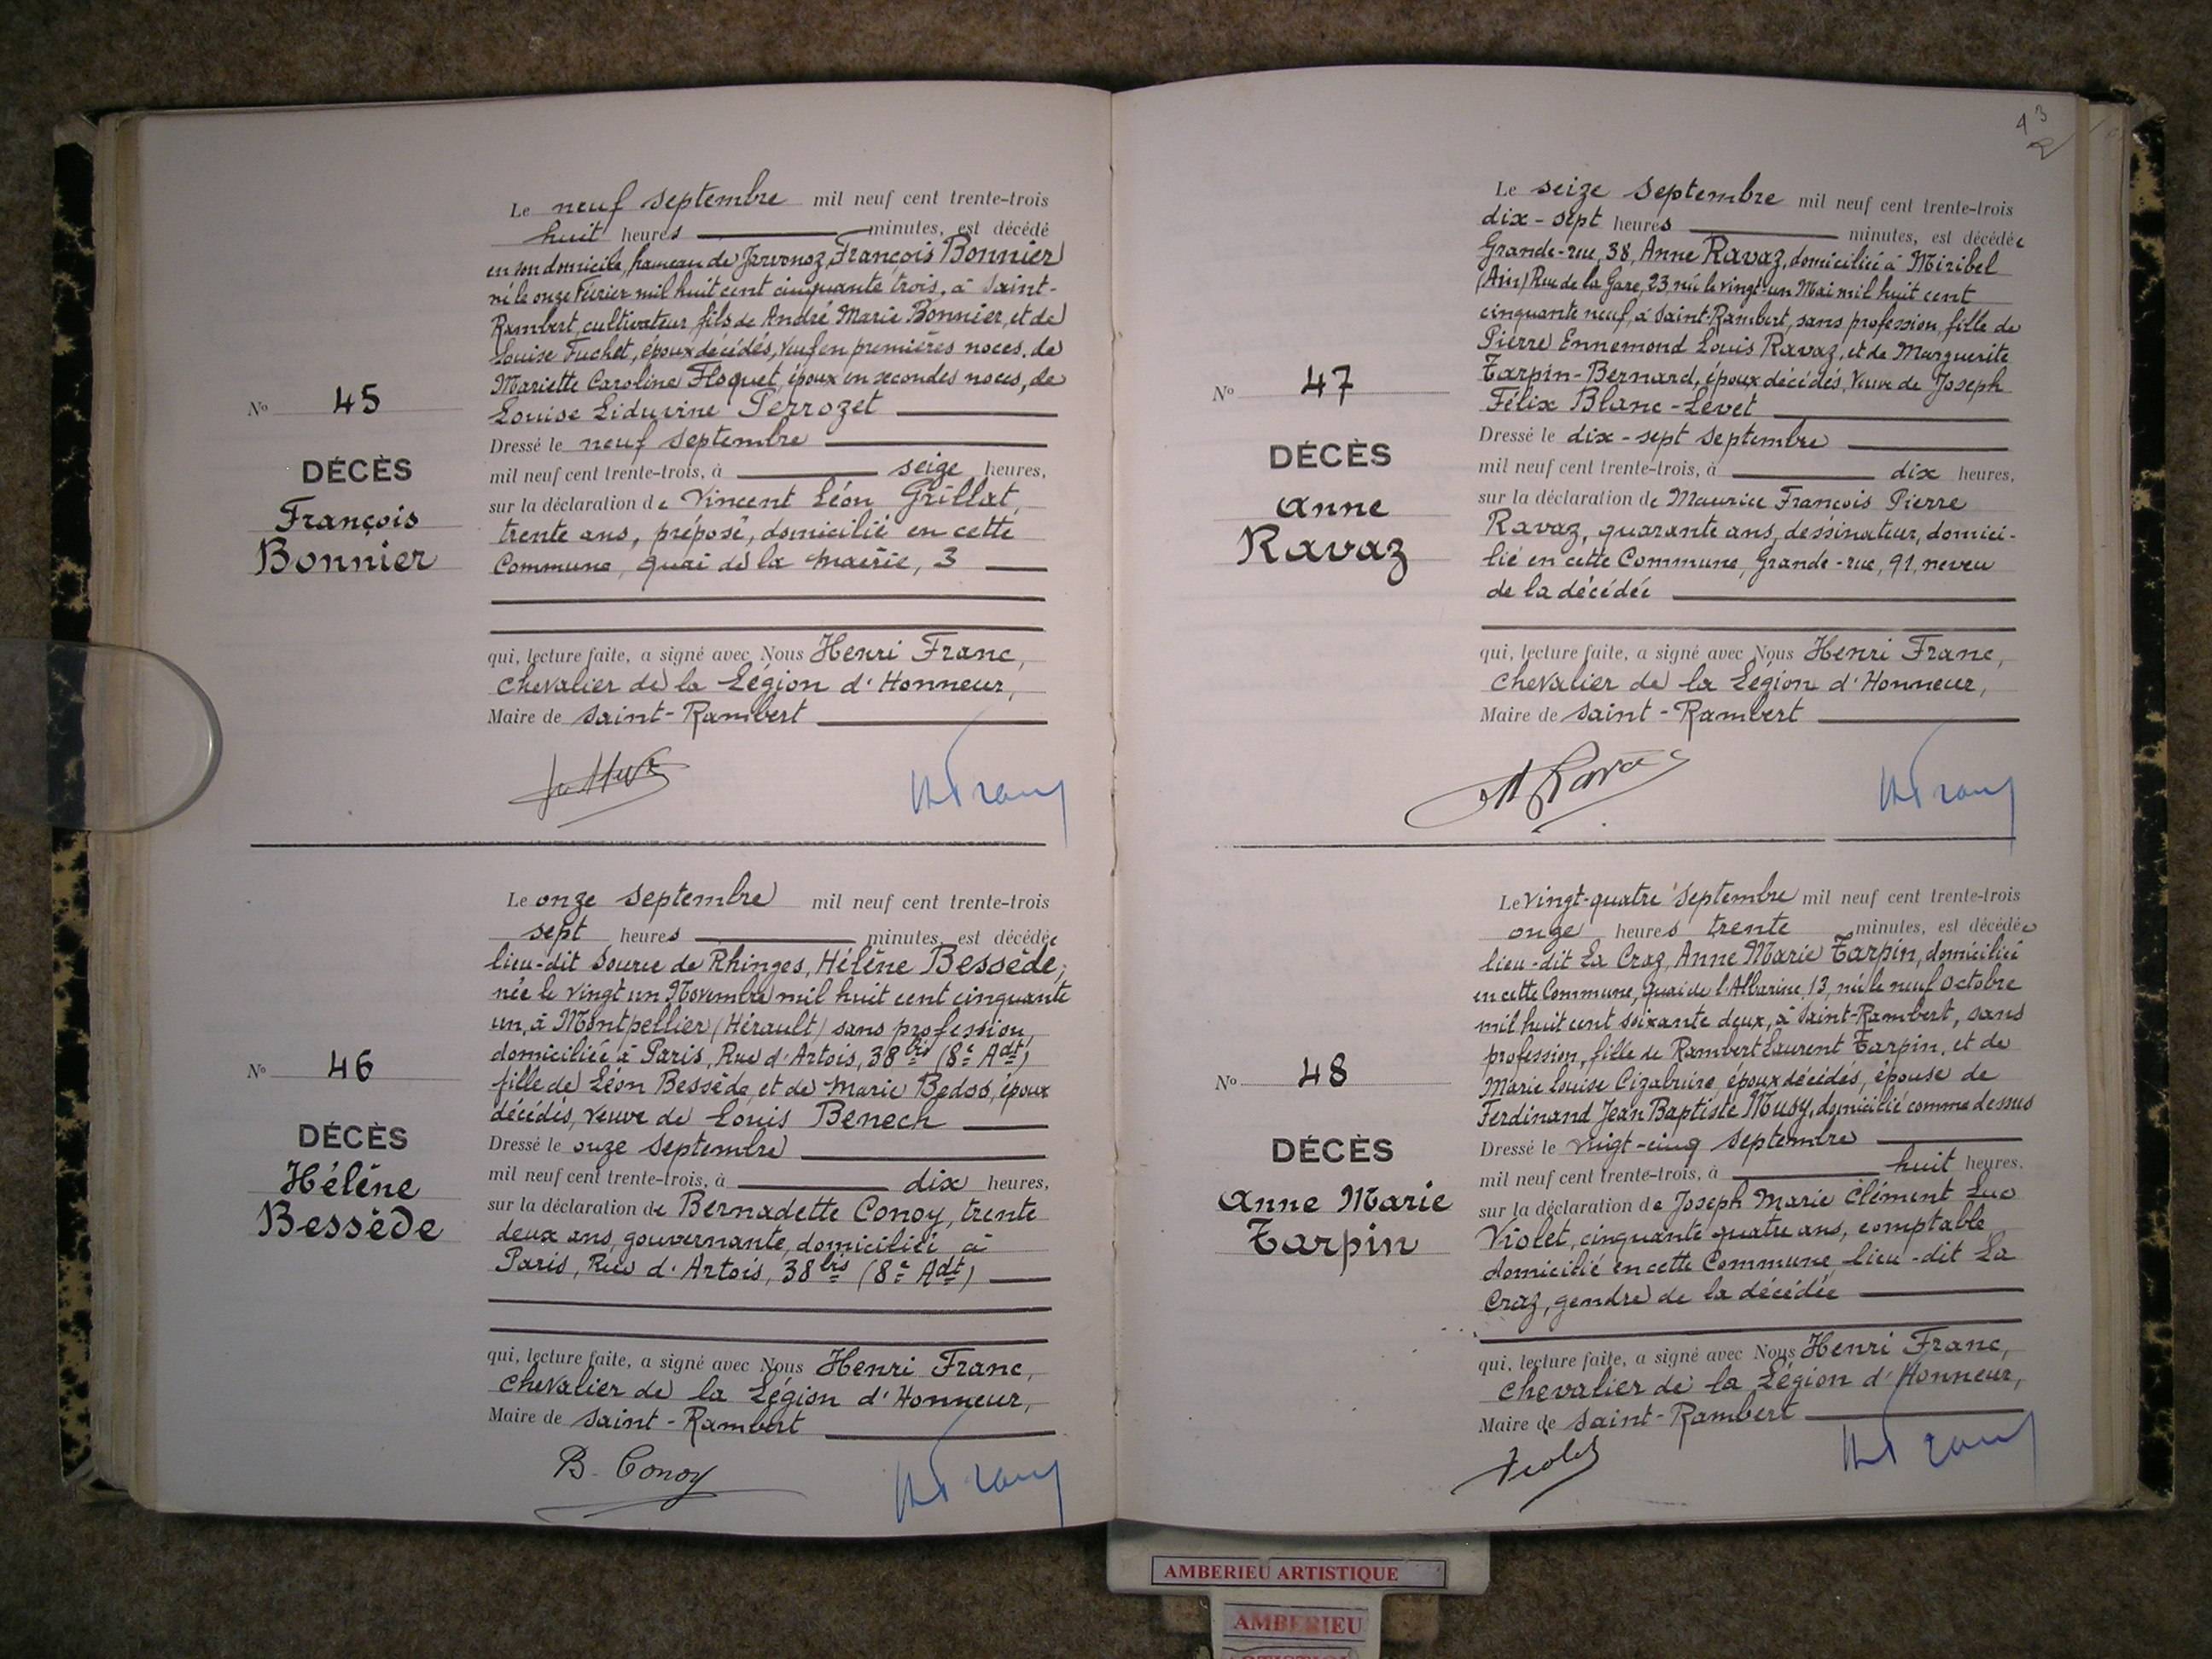 Le neuf septembre mil neuf cent trente-trois
huit heures minutes, est décédé
en son domicile, hameau de Javornoz, François Bonnier
né le onze Février mil huit cent cinquante trois, à Saint-
Rambert, cultivateur, fils de André Marie Bonnier, et de
Louise Fuchet, époux décédés, veuf en premières noces, de
Mariette Caroline Floquet, époux en secondes noces, de
Louise Liduvine Perrozet
Nº 45
DÉCÈS
François
Bonnier
Dressé le neuf septembre
mil neuf cent trente-trois, à seize heures,
sur la déclaration de Vincent Léon Grillat,
trente ans, préposé, domicilié en cette
Commune, quai de la Mairie, 3
qui, lecture faite, a signé avec Nous Henri Franc,
Chevalier de la Légion d'Honneur,
Maire de Saint-Rambert
H Franc
Le onze septembre mil neuf cent trente-trois
sept heures minutes, est décédée
lieu-dit Source de Rhinges, Hélène Bessède,
née le vingt un Novembre mil huit cent cinquante
un, à Montpellier (Hérault) sans profession,
domiciliée à Paris, Rue d'Artois, 38 bis (8e Adt)
fille de Léon Bessède, et de Marie Bedos, époux
décédés, veuve de Louis Benech
Nº 46
DÉCÈS
Hélène
Bessède
Dressé le onze septembre
mil neuf cent trente-trois, à dix heures,
sur la déclaration de Bernadette Conoy, trente
deux ans, gouvernante, domiciliée à
Paris, Rue d'Artois, 38 bis (8e Adt)
qui, lecture faite, a signé avec Nous Henri Franc,
Chevalier de la Légion d'Honneur,
Maire de Saint-Rambert
B. Conoy
H Franc
43
Le seize septembre mil neuf cent trente-trois
dix-sept heures minutes, est décédée
Grande-rue, 38, Anne Ravaz, domiciliée à Miribel
(Ain) Rue de la Gare, 23 née le vingt-un Mai mil huit cent
cinquante neuf, à Saint-Rambert, sans profession, fille de
Pierre Ennemond Louis Ravaz, et de Marguerite
Tarpin-Bernard, époux décédés, veuve de Joseph
Félix Blanc-Levet
Nº 47
DÉCÈS
Anne
Ravaz
Dressé le dix-sept septembre
mil neuf cent trente-trois, à dix heures,
sur la déclaration de Maurice François Pierre
Ravaz, quarante ans, dessinateur, domici-
lié en cette Commune, Grande-rue, 91, neveu
de la décédée
qui, lecture faite, a signé avec Nous Henri Franc,
Chevalier de la Légion d'Honneur,
Maire de Saint-Rambert
M Ravaz
H Franc
Le vingt-quatre septembre mil neuf cent trente-trois
onze heures trente minutes, est décédée
lieu-dit La Craz, Anne Marie Tarpin, domiciliée
en cette Commune, quai de l'Albarine, 13, née le neuf Octobre
mil huit cent soixante deux, à Saint-Rambert, sans
profession, fille de Rambert Laurent Tarpin, et de
Marie Louise Cizabuire, époux décédés, épouse de
Ferdinand Jean Baptiste Musy, domicilié comme dessus
Nº 48
DÉCÈS
Anne Marie
Tarpin
Dressé le vingt-cinq septembre
mil neuf cent trente-trois, à huit heures.
sur la déclaration de Joseph Marie Clément Luc
Violet, cinquante quatre ans, comptable
domicilié en cette Commune, lieu-dit La
Craz, gendre de la décédée
qui, lecture faite, a signé avec Nous Henri Franc,
Chevalier de la Légion d'Honneur,
Maire de Saint-Rambert
Violet
H Franc
AMBERIEU ARTISTIQUE
AMBERIEU
ARTISTIQUE